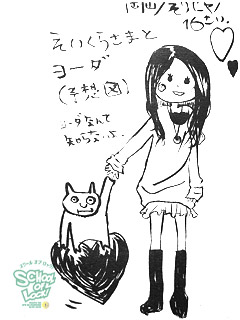 16さい。
えいくらさまと
ヨーダ
(予想図)
ヨーダなんて
知らないよ。
SCHOOL
OF
LOCK!